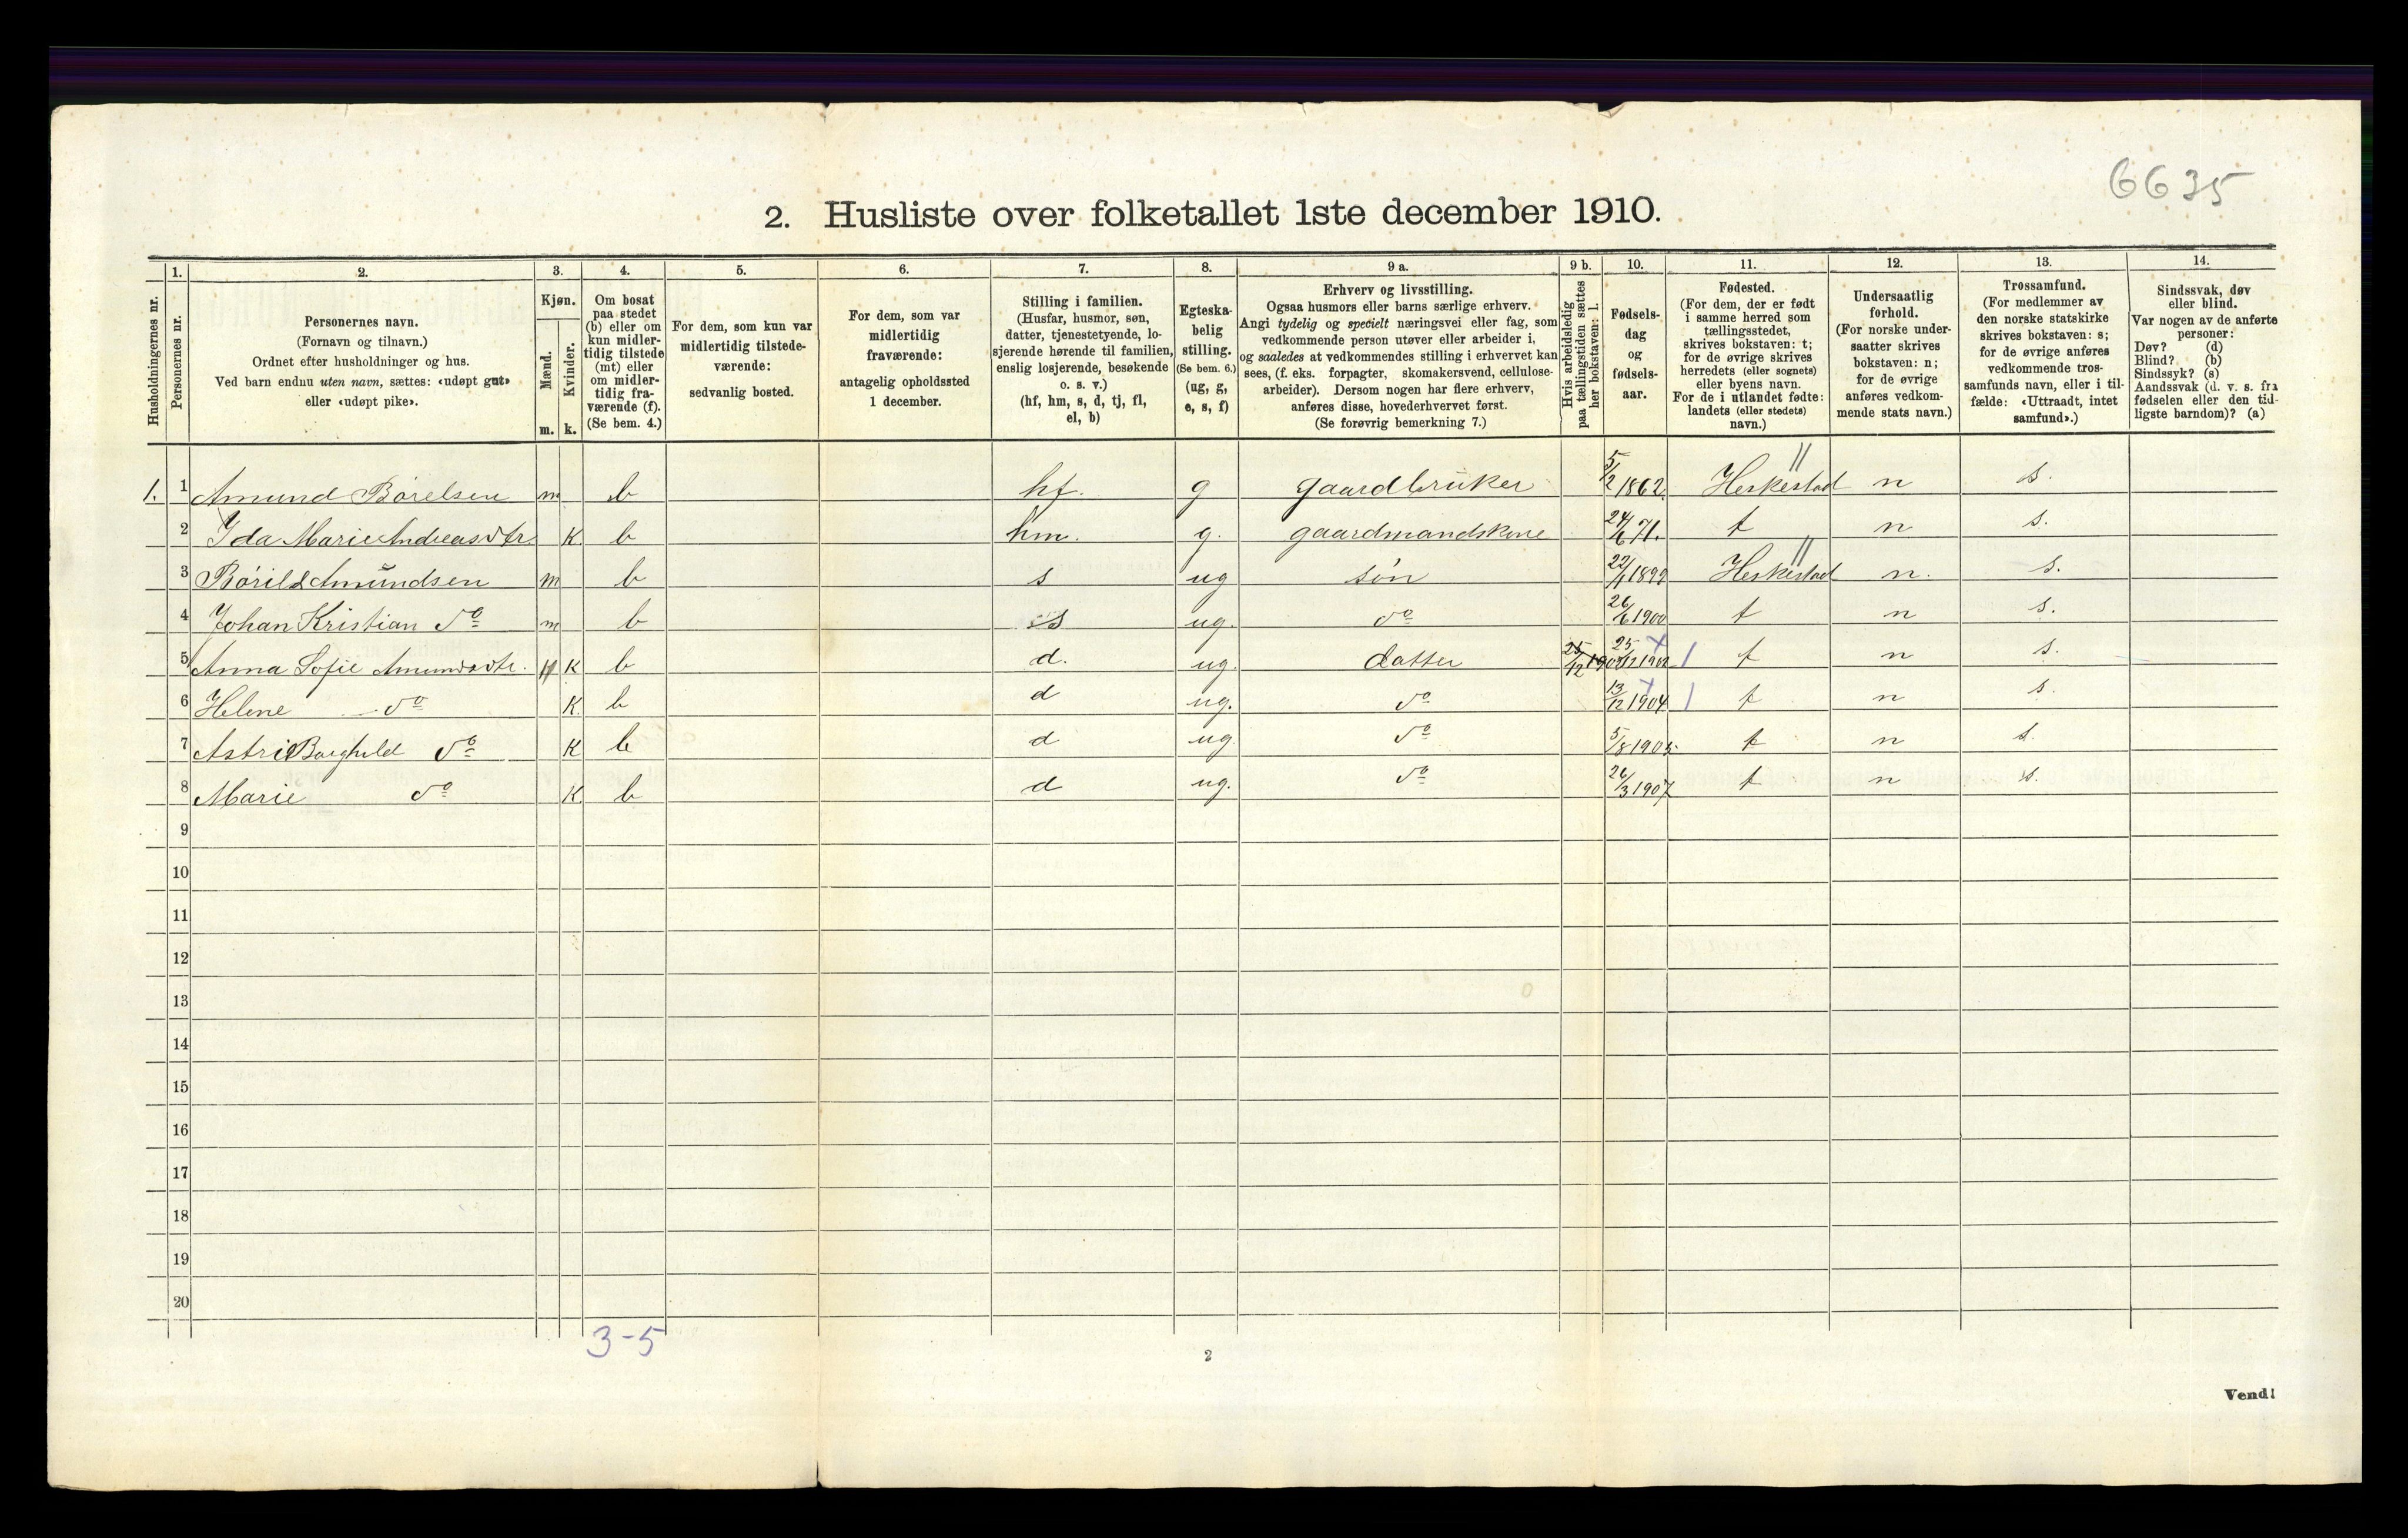 6635
2. Husliste over folketallet 1ste december 1910.
Husholdningernes nr.
1.
Personernes nr.
2.
Personernes navn.
(Fornavn og tilnavn.)
Ordnet efter husholdninger og hus.
Ved barn endnu uten navn, sættes: «udøpt gut»
eller «udøpt pike».
3.
Kjøn.
Mænd.
Kvinder.
m. k.
4.
Om bosat
paa stedet
(b) eller om
kun midler-
tidig tilstede
(mt) eller
om midler-
tidig fra-
værende (f).
(Se bem. 4.)
5.
For dem, som kun var
midlertidig tilstede-
værende:
sedvanlig bosted.
6.
For dem, som var
midlertidig
fraværende:
antagelig opholdssted
1 december.
7.
Stilling i familien.
(Husfar, husmor, søn,
datter, tjenestetyende, lo-
sjerende hørende til familien,
enslig losjerende, besøkende
o. s. v.)
(hf, hm, s, d, tj, fl,
el, b)
8.
Egteska-
belig
stilling.
(Se bem. 6.)
(ug, g,
e, s, f)
9 a.
Erhverv og livsstilling.
Ogsaa husmors eller barns særlige erhverv.
Angi tydelig og specielt næringsvei eller fag, som
vedkommende person utøver eller arbeider i,
og saaledes at vedkommendes stilling i erhvervet kan
sees, (f. eks. forpagter, skomakersvend, cellulose-
arbeider). Dersom nogen har flere erhverv,
anføres disse, hovederhvervet først.
(Se forøvrig bemerkning 7.)
9 b.
Hvis arbeidsledig
paa tællingstiden sættes
her bokstaven: l.
10.
Fødsels-
dag
og
fødsels-
aar.
11.
Fødested.
(For dem, der er født
i samme herred som
tællingsstedet,
skrives bokstaven: t;
for de øvrige skrives
herredets (eller sognets)
eller byens navn.
For de i utlandet fødte:
landets (eller stedets)
navn.)
12.
Undersaatlig
forhold.
(For norske under-
saatter skrives
bokstaven: n;
for de øvrige
anføres vedkom-
mende stats navn.)
13.
Trossamfund.
(For medlemmer av
den norske statskirke
skrives bokstaven: s;
for de øvrige anføres
vedkommende tros-
samfunds navn, eller i til-
fælde: «Uttraadt, intet
samfund».)
14.
Sindssvak, døv
eller blind.
Var nogen av de anførte
personer:
Døv? (d)
Blind? (b)
Sindssyk? (s)
Aandssvak (d. v. s. fra
fødselen eller den tid-
ligste barndom)? (a)
1. 1 Amund Børelsen m b hf. g gaardbruker 5/12 1862. Heskestad n s.
2 Ida Marie Andreasdtr. K b hm. g. gaardmandskone 24/6 71. t n s.
3 Børild Amundsen m b s ug søn 22/1 1899 Heskestad n. s.
4 Johan Kristian do m b s ug. do 26/6 1900 t n s.
5 Anna Sofie Amundsdtr. K b d. ug. datter 25/12 1902 25/12 1902 t n s.
6 Helene do K. b d ug. do 13/12 1904 t n s.
7 Astrid Borghild do K b d ug do 5/8 1905 t n s.
8 Marie do K b d ug. do 26/3 1907 t n s.
9
10
11
12
13
14
15
16
17
18
19
20
3-5
2
Vend!